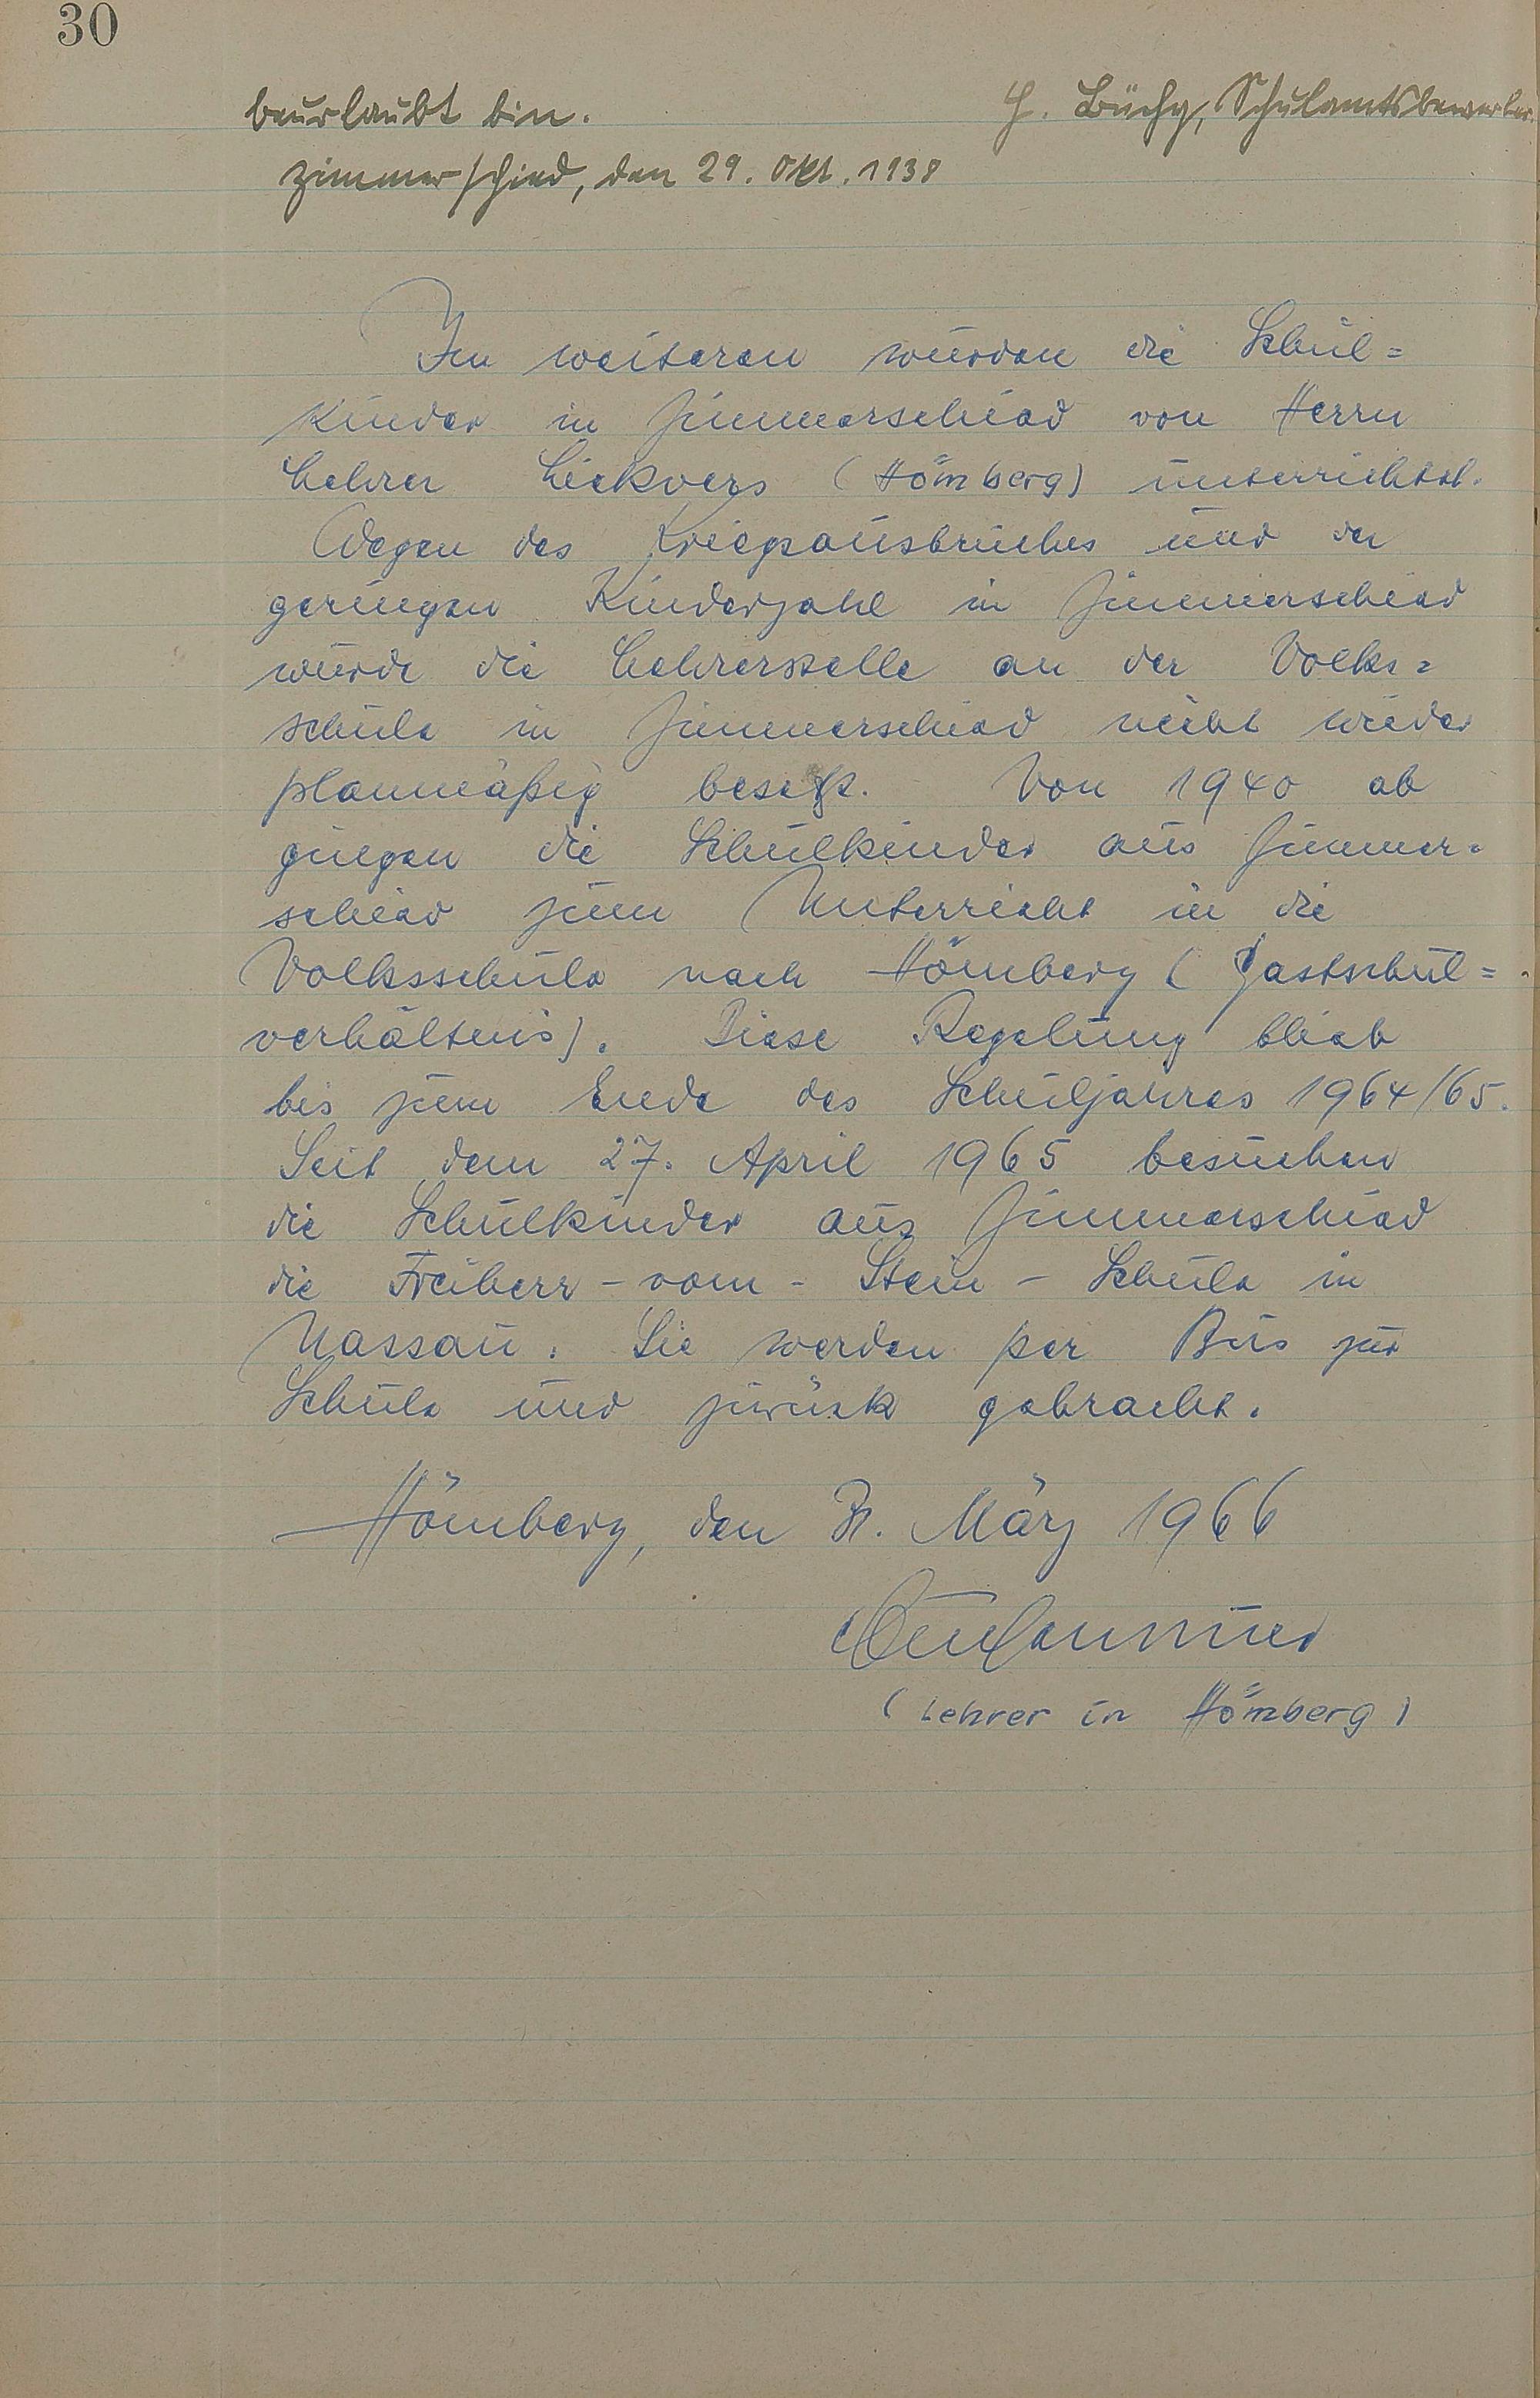 30
beurlaubt bin. H. Büchy, Schulamtsbewerber.
Zimmerschied, den 29. Okt. 1938
Im weiteren wurden die Schul=
kinder in Zimmerschied von Herrn
Lehrer Liekvers (Hömberg) unterrichtet.
Wegen des Kriegsausbruches und der
geringen Kinderzahl in Zimmerschied
wurde die Lehrerstelle an der Volks=
schule in Zimmerschied nicht wieder
planmäßig besetzt. Von 1940 ab
gingen die Schulkinder aus Zimmer=
schied zum Unterricht in die
Volksschule nach Hömberg (Gastschul=
verhältnis). Diese Regelung blieb
bis zum Ende des Schuljahres 1964/65.
Seit dem 27. April 1965 besuchen
die Schulkinder aus Zimmerschied
die Freiherr-vom-Stein-Schule in
Nassau. Sie werden per Bus zur
Schule und zurück gebracht.
Hömberg, den 31. März 1966
(Lehrer in Hömberg)